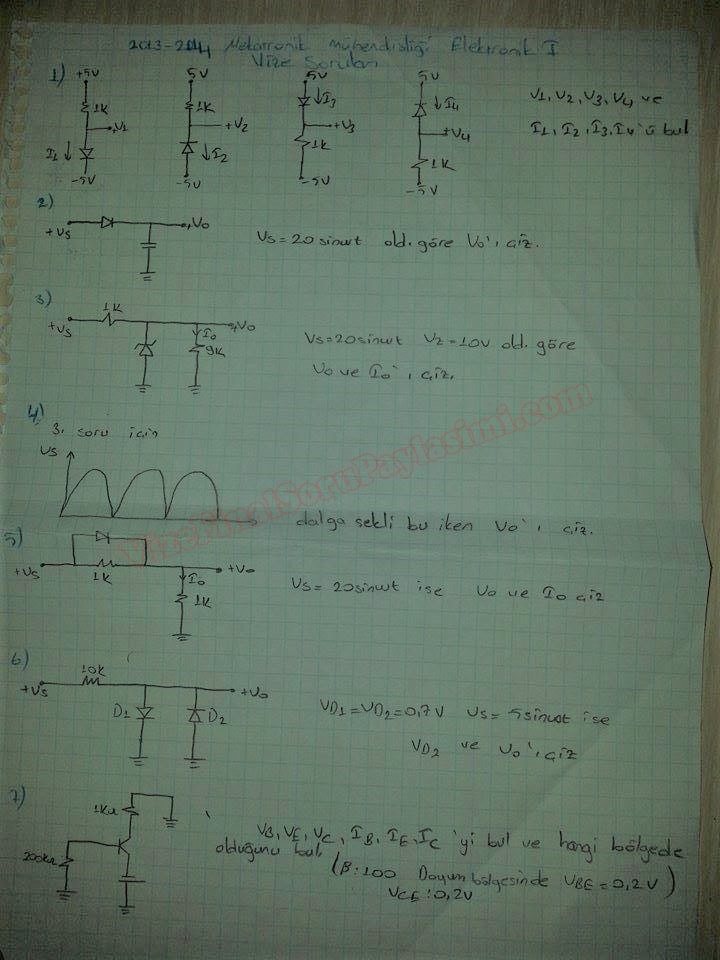 2013-2014 Mekatronik mühendisliği Elektronik I
Vize Soruları
1) +5V 5V 5V 5V
1K +V1 1K +V2 ↓I3 +V3 ↑I4 +V4
I1 ↓ ↓I2 1K 1K
-5V -5V -5V -5V
V1, V2, V3, V4 ve
I1, I2, I3, I4'ü bul
2)
+Vs +Vo
Vs=20sinwt old. göre Vo'ı çiz.
3)
1K
+Vs Io +Vo
9K
Vs=20sinwt Vz=10V old. göre
Vo ve Io'ı çiz.
4)
3. soru için
Vs
dalga sekli bu iken Vo'ı çiz.
5)
+Vs 1K +Vo
Io
1K
Vs= 20sinwt ise Vo ve Io çiz
6)
10K
+Vs +Vo
D1 D2
VD1=VD2=0,7V Vs= 5sinwt ise
VD2 ve Vo'ı çiz
7)
1KΩ
200KΩ
VB, VE, VC, IB, IE, IC 'yi bul ve hangi bölgede
olduğunu bul.
(β:100 Doyum bölgesinde VBE=0,2V)
VCE:0,2V